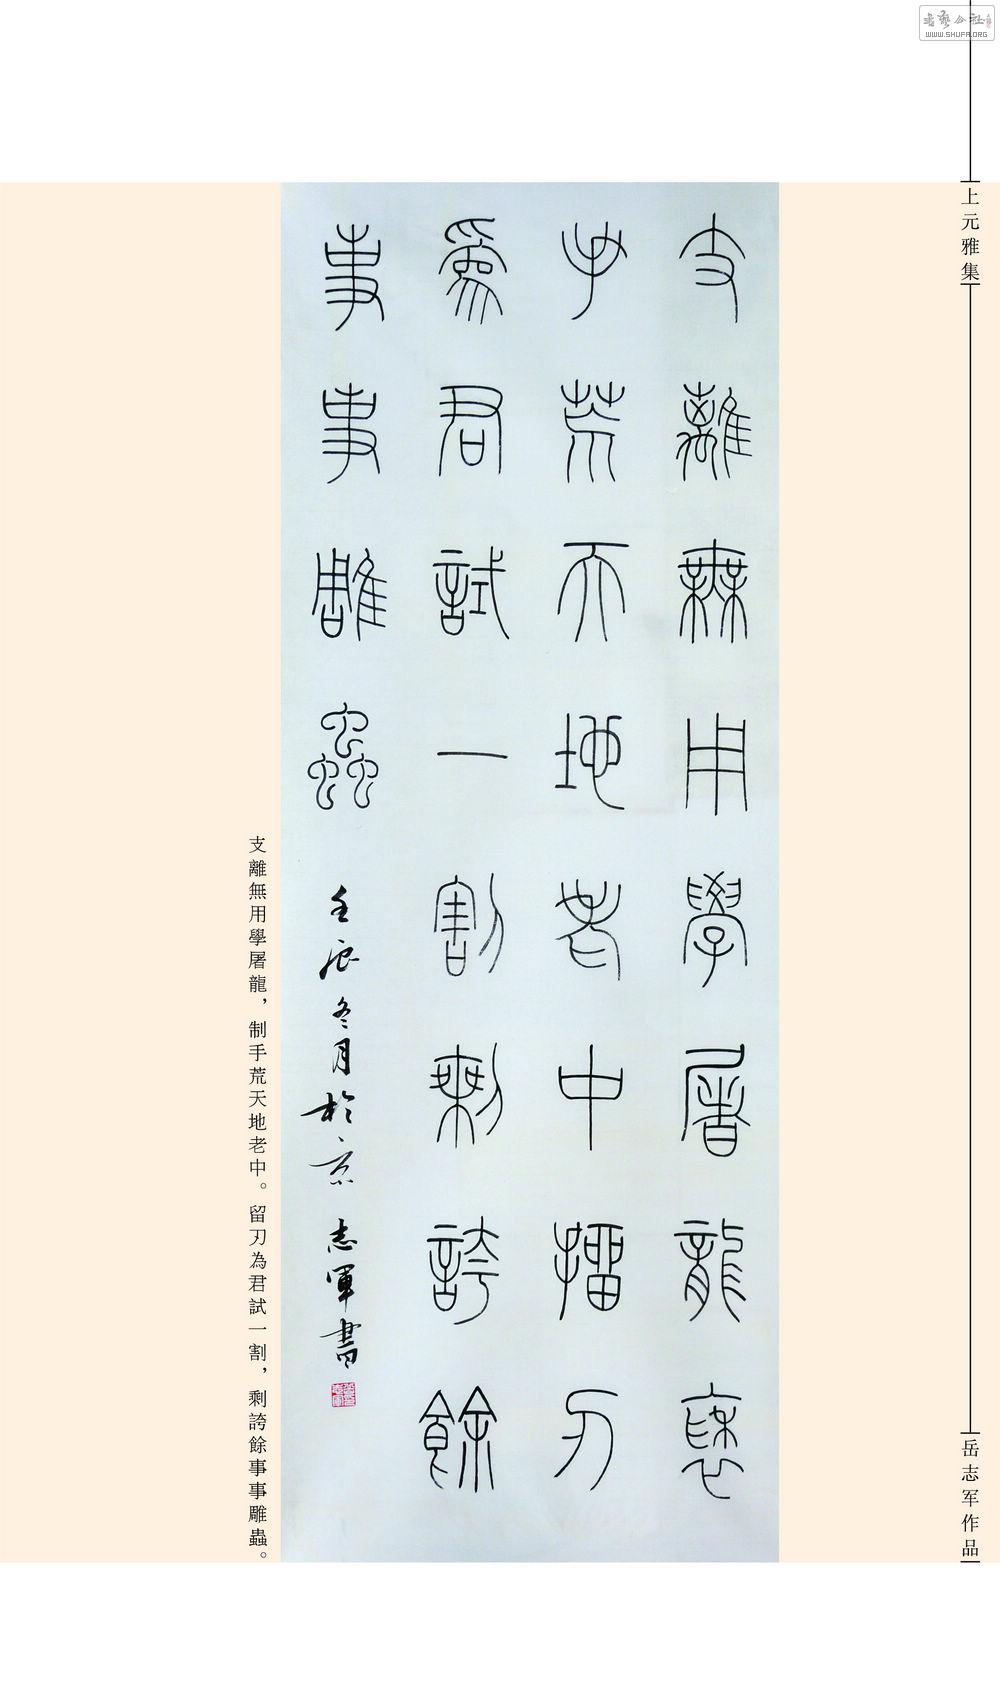 书艺公社
WWW.SHUFA.ORG
上元雅集
岳志军作品
支離無用學屠龍褎
手荒天地老中㩅刃
爲君試一割剩誇餘
事事雕蟲 壬辰冬月於京 志軍書
支離無用學屠龍，制手荒天地老中。留刃為君試一割，剩誇餘事事雕蟲。